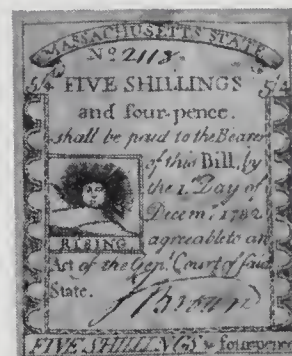 MASSACHUSETTS STATE
No 2118.
5/4 5/4
FIVE SHILLINGS
and four-pence.
shall be paid to the Bearer
of this Bill, by
the 1. Day of
Decemr. 1782
RISING
agreeable to an
Act of the Genl. Court of said
State.
FIVE SHILLINGS & fourpence